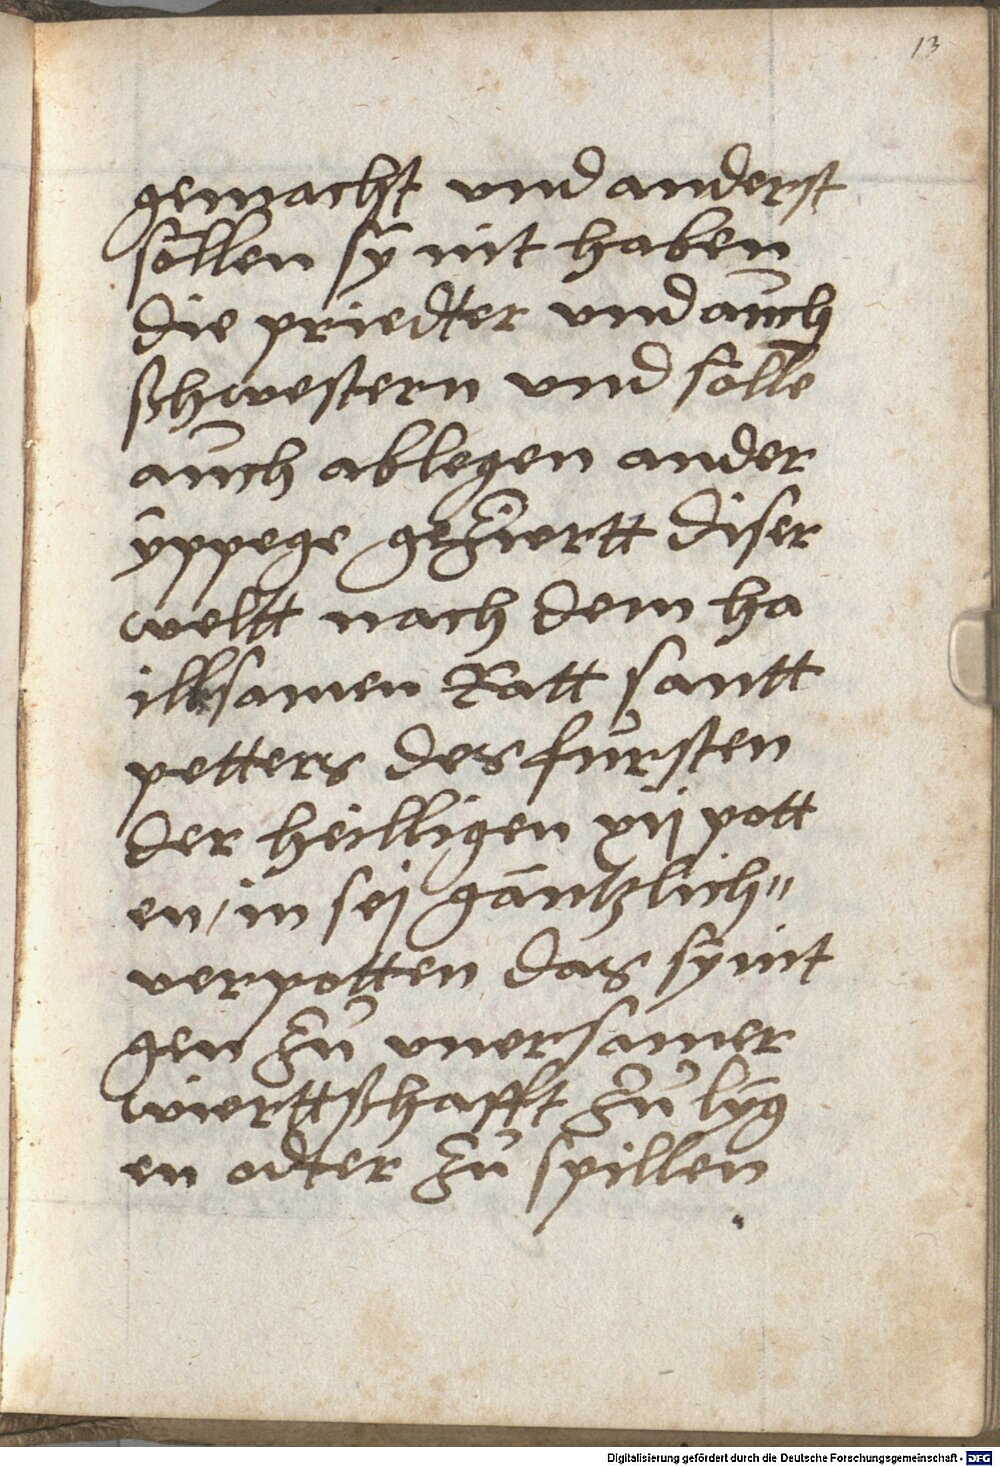 13
gemachst vnd anderst
söllen sÿ nit haben
die priedter vnd auch
ßhwestern vnd sölle
auch ablegen ander
ÿppege geziertt diser
weltt nach dem ha
illsamen Ratt santt
petters des fursten
der heilligen xij pott
en / in seÿ gäntzlich"
verpotten das sÿ nit
gen zu vnersamer
wierttßhafft zu lÿg
en odter zu spillen
Digitalisierung gefördert durch die Deutsche Forschungsgemeinschaft - DFG